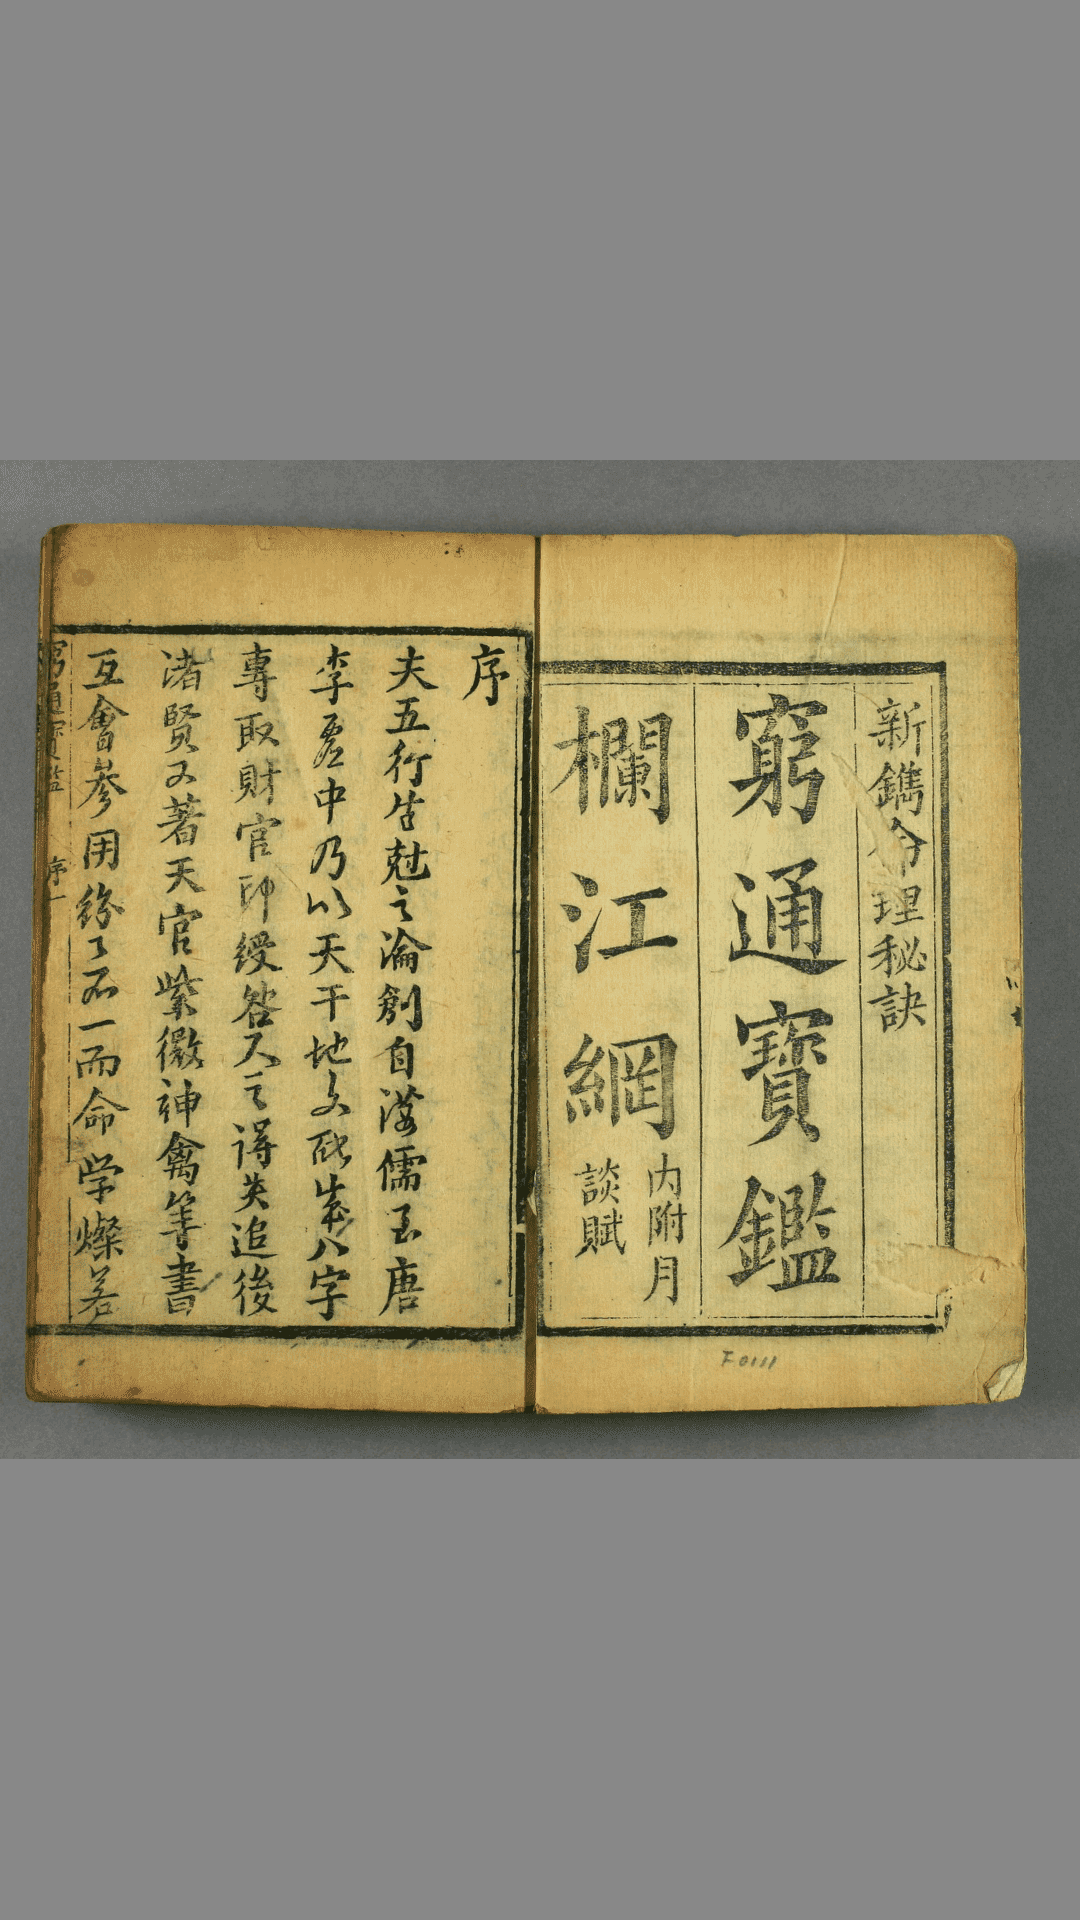 新鐫命理秘訣
窮通寶鑑
欄江網
內附月
談賦
F0111
序
夫五行生尅之論創自漢儒至唐
李虛中乃以天干地支配成八字
專取財官印綬咎人之得失追後
渚賢又著天官紫微神禽等書
互會參用紛〻不一而命学燦若
窮通寶鑑 序一